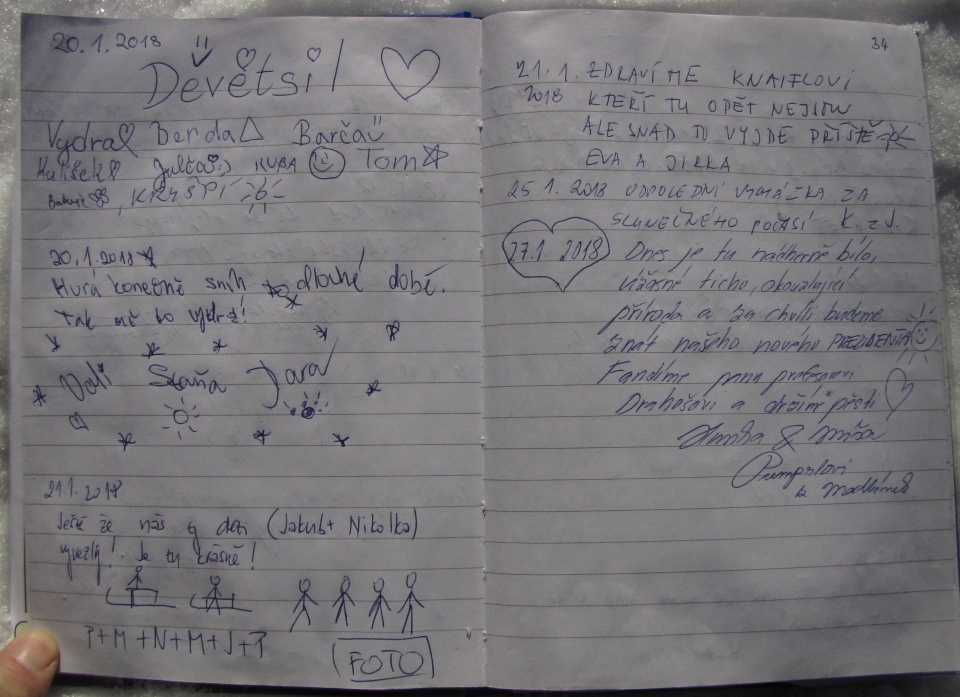 20.1.2018
Děvětsil
Vydra Benda Barča
Kulíšek Julča KUBA Tom
KRYŠPÍ
20.1.2018
Hurá konečně sníh po dlouhé době.
Tak ať to vydrží!
Vali Staňa Jara
21.1.2018
Ještě že nás y děti (Jakub + Nikolka)
vyvezly! Je tu krásně!
P+M+N+M+J+P
FOTO
34
21.1. ZDRAVÍME KNAIFLOVI
2018 KTEŘÍ TU OPĚT NEJSOU
ALE SNAD TO VYJDE PŘÍŠTĚ
EVA A JIRKA
25.1.2018 ODPOLEDNÍ VYCHÁZKA ZA
SLUNEČNÉHO POČASÍ K. z J.
27.1.2018 Dnes je tu nádherně bílo,
úžasné ticho, okouzlující
příroda a za chvíli budeme
znát našeho nového PREZIDENTA
Fandíme panu profesorovi
Drahošovi a držíme pěsti
&